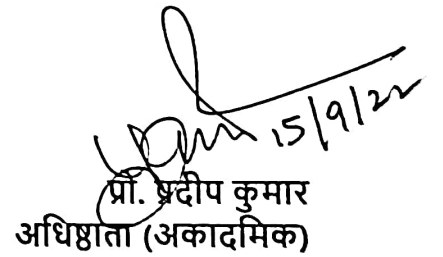 15/9/22
प्रो. प्रदीप कुमार
अधिष्ठाता (अकादमिक)